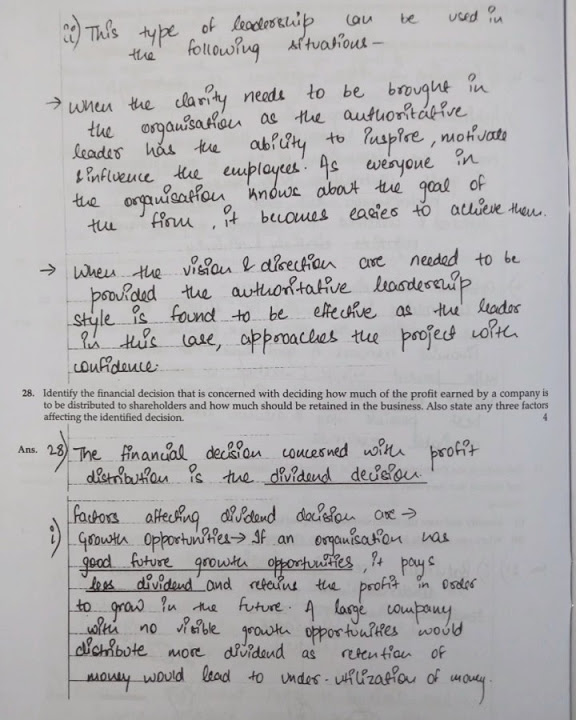 ii) This type of leadership can be used in
the following situations -
→ When the clarity needs to be brought in
the organisation as the authoritative
leader has the ability to inspire, motivate
& influence the employees. As everyone in
the organisation knows about the goal of
the firm, it becomes easier to achieve them.
→ When the vision & direction are needed to be
provided the authoritative leardership
style is found to be effective as the leader
in this case, approaches the project with
confidence.
28. Identify the financial decision that is concerned with deciding how much of the profit earned by a company is
to be distributed to shareholders and how much should be retained in the business. Also state any three factors
affecting the identified decision. 4
Ans. 28) The financial decision concerned with profit
distribution is the dividend decision.
Factors affecting dividend decision are →
i) Growth Opportunities → If an organisation has
good future growth opportunities, it pays
less dividend and retains the profit in order
to grow in the future. A large company
with no visible growth opportunities would
distribute more dividend as retention of
money would lead to under-utilization of money.